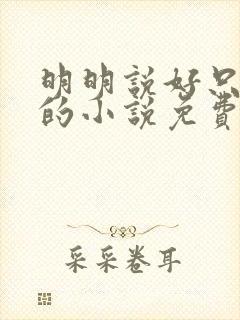 明明説好只
的小説免費
采采卷耳